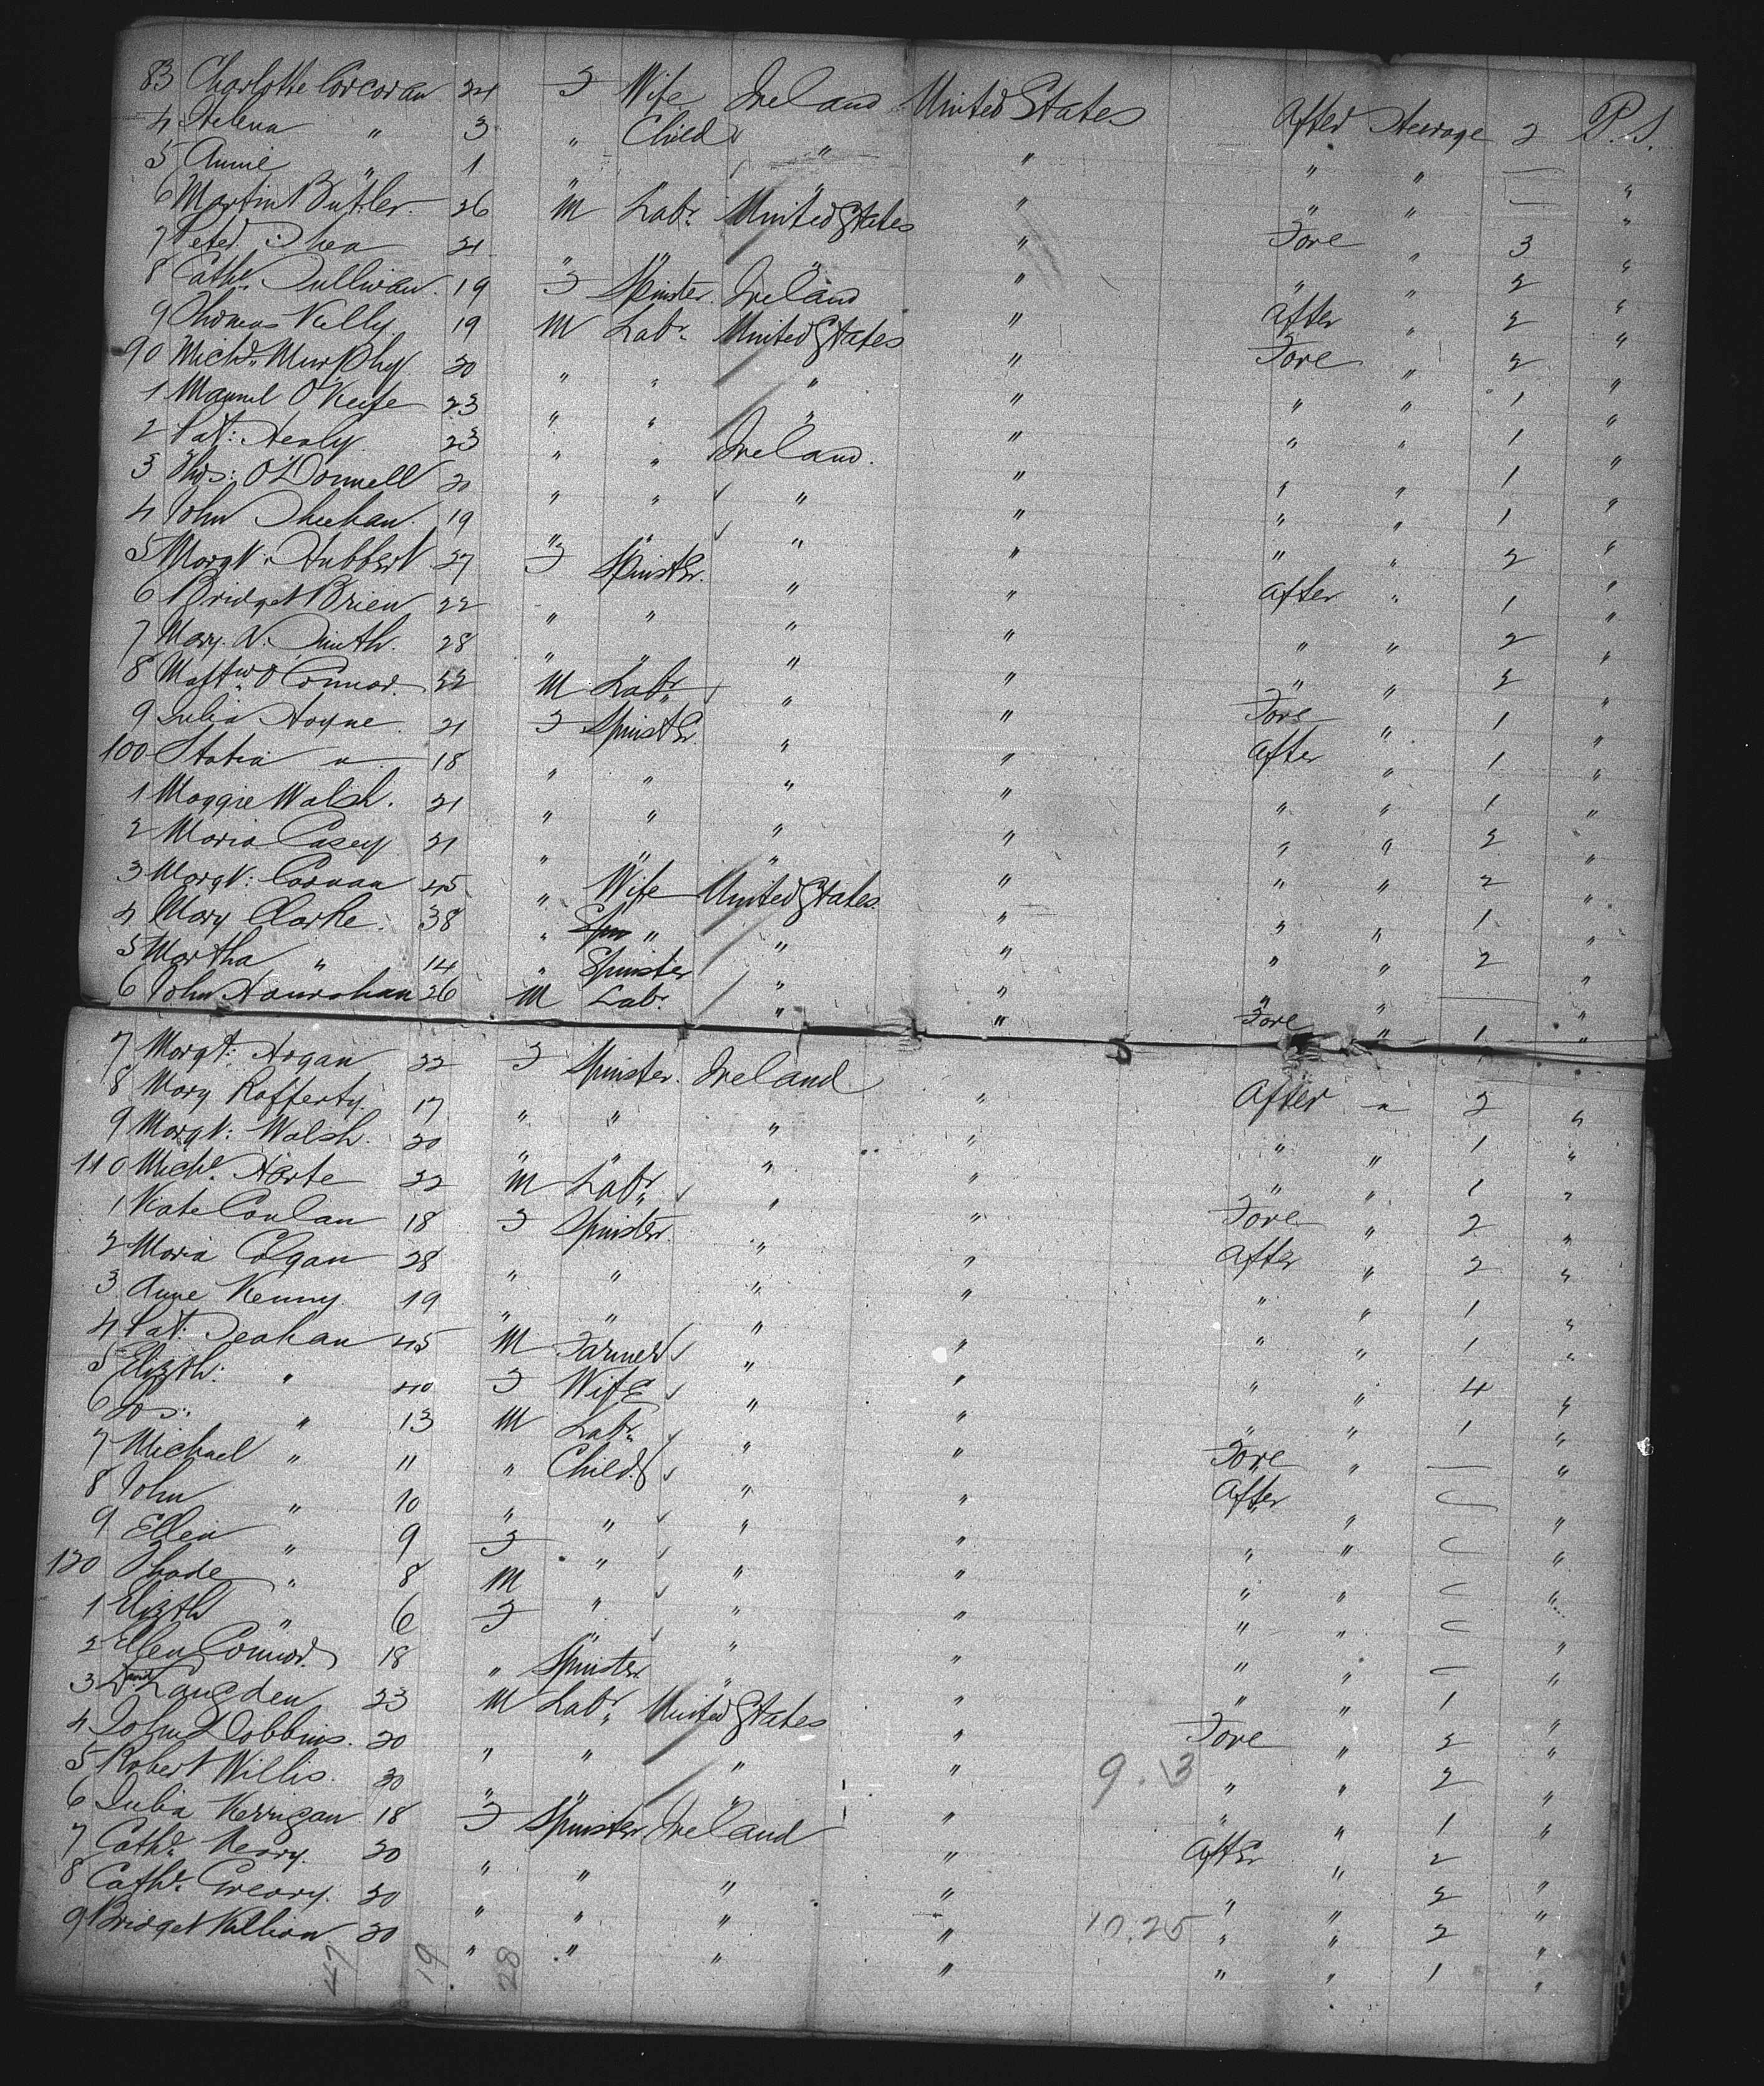 83 Charlotte Corcoran 24 F Wife Ireland United States After Steerage 2 P.S.
4 Helena " 3 " Child " " " " — "
5 Annie " 1 " " " " " " — "
6 Martin Butler 26 M Labr. United States " Fore " 3 "
7 Peter Shea 21 " " " " " " 2 "
8 Cathe. Sullivan 19 F Spinster Ireland " After " 2 "
9 Thomas Kelly 19 M Labr. United States " Fore " 2 "
90 Michl. Murphy 20 " " " " " " 1 "
1 O'Keefe 23 " " " " " " 1 "
2 Pat: Healy 23 " " Ireland " " " 1 "
3 Thos: O'Donnell 20 " " " " " " 1 "
4 John Sheehan 19 " " " " " " 2 "
5 Margt: Hubbert 27 F Spinster " " After " 1 "
6 Bridget Brien 22 " " " " " " 2 "
7 Mary A. Smith 28 " " " " " " 2 "
8 Mattw. O'Connor 22 M Labr. " " Fore " 1 "
9 Julia Hoyne 21 F Spinster " " After " 1 "
100 Statia " 18 " " " " " " 1 "
1 Maggie Walsh 21 " " " " " " 2 "
2 Maria Casey 21 " " " " " " 2 "
3 Margt: 45 " Wife United States " " " 1 "
4 Mary Clarke 38 " " " " " " 2 "
5 Martha " 14 " Spinster " " " " — "
6 John Hanrahan 26 M Labr. " " Fore " 1 "
7 Margt: Hogan 22 F Spinster Ireland " After " 2 "
8 Mary Rafferty 17 " " " " " " 1 "
9 Margt: Walsh 20 " " " " " " 1 "
110 Michl. Harte 22 M Labr. " " Fore " 2 "
1 Kate Conlan 18 F Spinster " " After " 2 "
2 Maria Colgan 28 " " " " " " 1 "
3 Anne Kenny 19 " " " " " " 1 "
4 Pat: 45 M Farmer " " " " 4 "
5 Elizth: " 40 F Wife " " " " 1 "
6 Jos: " 13 M Labr. " " Fore " — "
7 Michael " 11 " Child " " After " — "
8 John " 10 " " " " " " — "
9 Ellen " 9 F " " " " " — "
120 Thade " 8 M " " " " " — "
1 Elizth " 6 F " " " " " — "
2 Ellen Connor 18 " Spinster " " " " 1 "
3 David Langden 23 M Labr. United States " Fore " 2 "
4 John Dobbins 20 " " " " " " 2 "
5 Robert Willis 30 " " " " 9.3 " " 1 "
6 Julia Kerrigan 18 F Spinster Ireland " After " 2 "
7 Cathe. Keary 20 " " " " " " 2 "
8 Cathe. Creary 20 " " " " " " 2 "
9 Bridget Killion 20 " " " " 10.25 " " 1 "
47 19 28